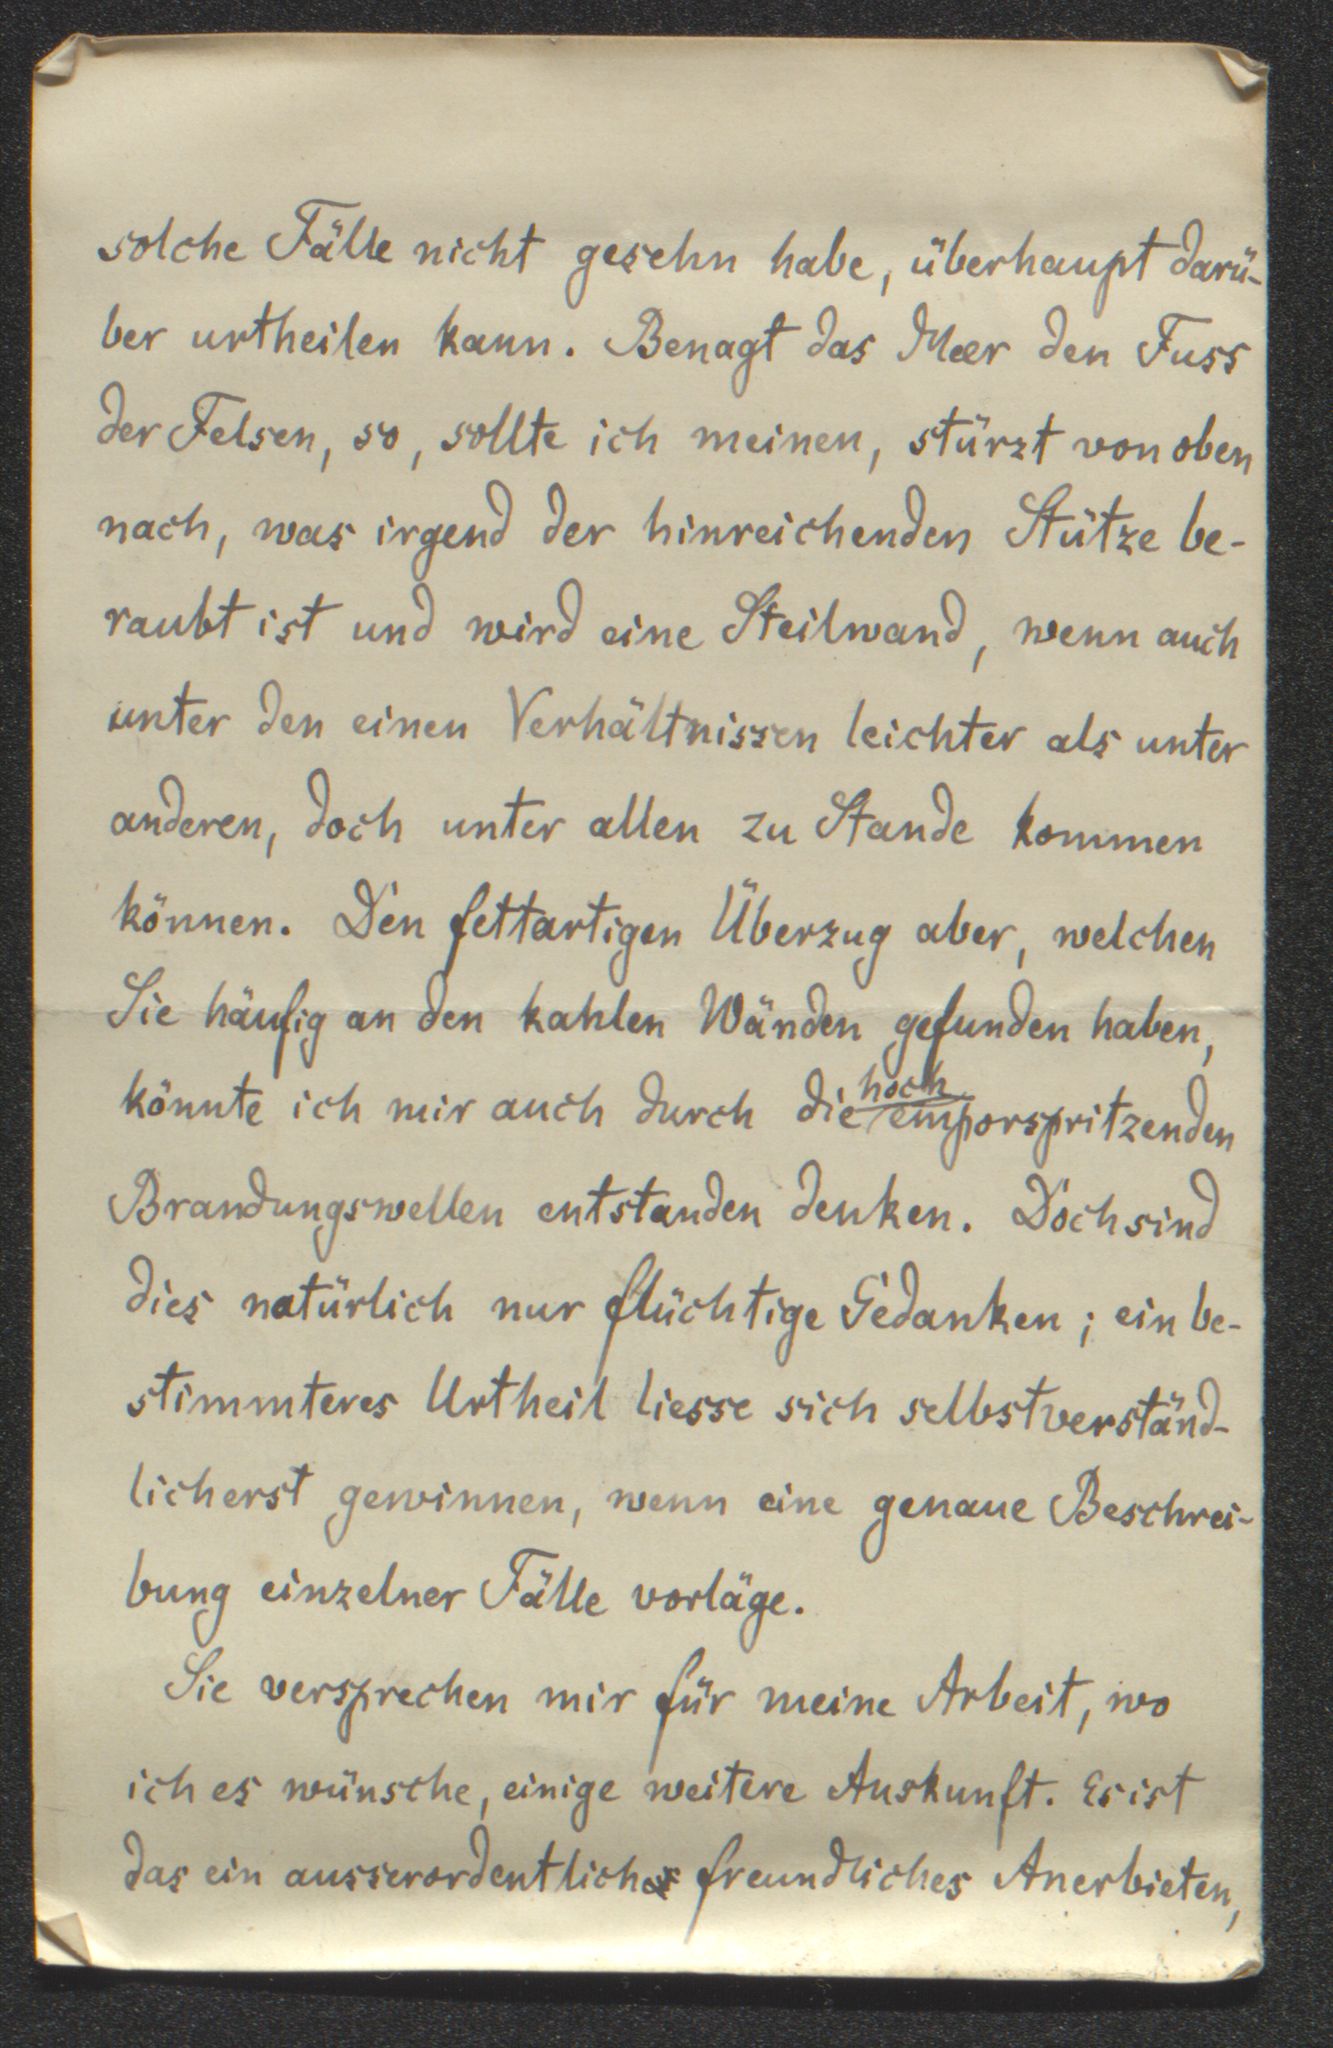 solche Fälle nicht gesehn habe, überhaupt darü-
ber urtheilen kann. Benagt das Meer den Fuss
der Felsen, so, sollte ich meinen, stürzt von oben
nach, was irgend der hinreichenden Stütze be-
raubt ist und wird eine Steilwand, wenn auch
unter den einen Verhältnissen leichter als unter
anderen, doch unter allen zu Stande kommen
können. Den fettartigen Überzug aber, welchen
Sie häufig an den kahlen Wänden gefunden haben,
könnte ich mir auch durch die hoch emporspritzenden
Brandungswellen entstanden denken. Doch sind
dies natürlich nur flüchtige Gedanken; ein be-
stimmteres Urtheil liesse sich selbstverständ-
lich erst gewinnen, wenn eine genaue Beschrei-
bung einzelner Fälle vorläge.
Sie versprechen mir für meine Arbeit, wo
ich es wünsche, einige weitere Auskunft. Es ist
das ein ausserordentlich freundliches Anerbieten,